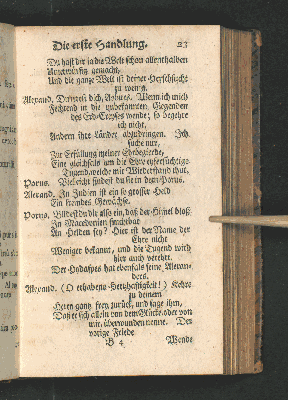 Die erste Handlung. 23
Du hast dir ja die Welt schon allenthalben
unterwürfig gemacht,
Und die ganze Welt ist deiner Herrschsucht
zu wenig.
Alexand. dich, Porus. Wenn ich mich
Fechtend in die unbekannten Gegenden
des Erd-Creyses wende; so begehre
ich nicht,
Andern ihre Länder abzudringen. Ich
suche nur,
Zur Erfüllung meiner Ehrbegierde,
Eine gleichfals um die Ehre eyfersüchtige
Tugend, welche mit Wiederstand thut.
Porus. Vielleicht findest du sie in dem Porus.
Alexand. In Indien ist ein so grosser Held
Ein fremdes Gewächse.
Porus. Bildest du dir also ein, daß der Himel bloß
In Macedonien fruchtbar
An Helden sey? Hier ist der Name der
Ehre nicht
Weniger bekannt, und die Tugend wird
hier auch verehrt.
Der Hydaspes hat ebenfals seine Alexan-
ders.
Alexand. (O erhabene Hertzhafftigkeit!) Kehre
zu deinem
Heren gantz frey zurück, und sage ihm,
Daß er sich allein von dem Glücke, oder von
mir, überwunden nenne. Der
vorige Friede
B 4 Werde